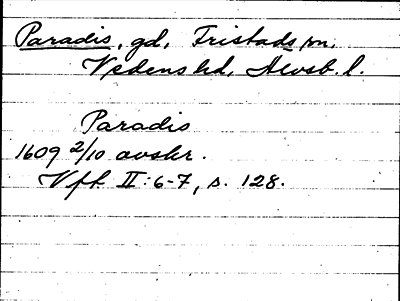 Paradis, gd, Fristads sn,
Vedens hd, Älvsb. l.
Paradis
1609 2/10 avskr.
Vfh II:6-7, s. 128.